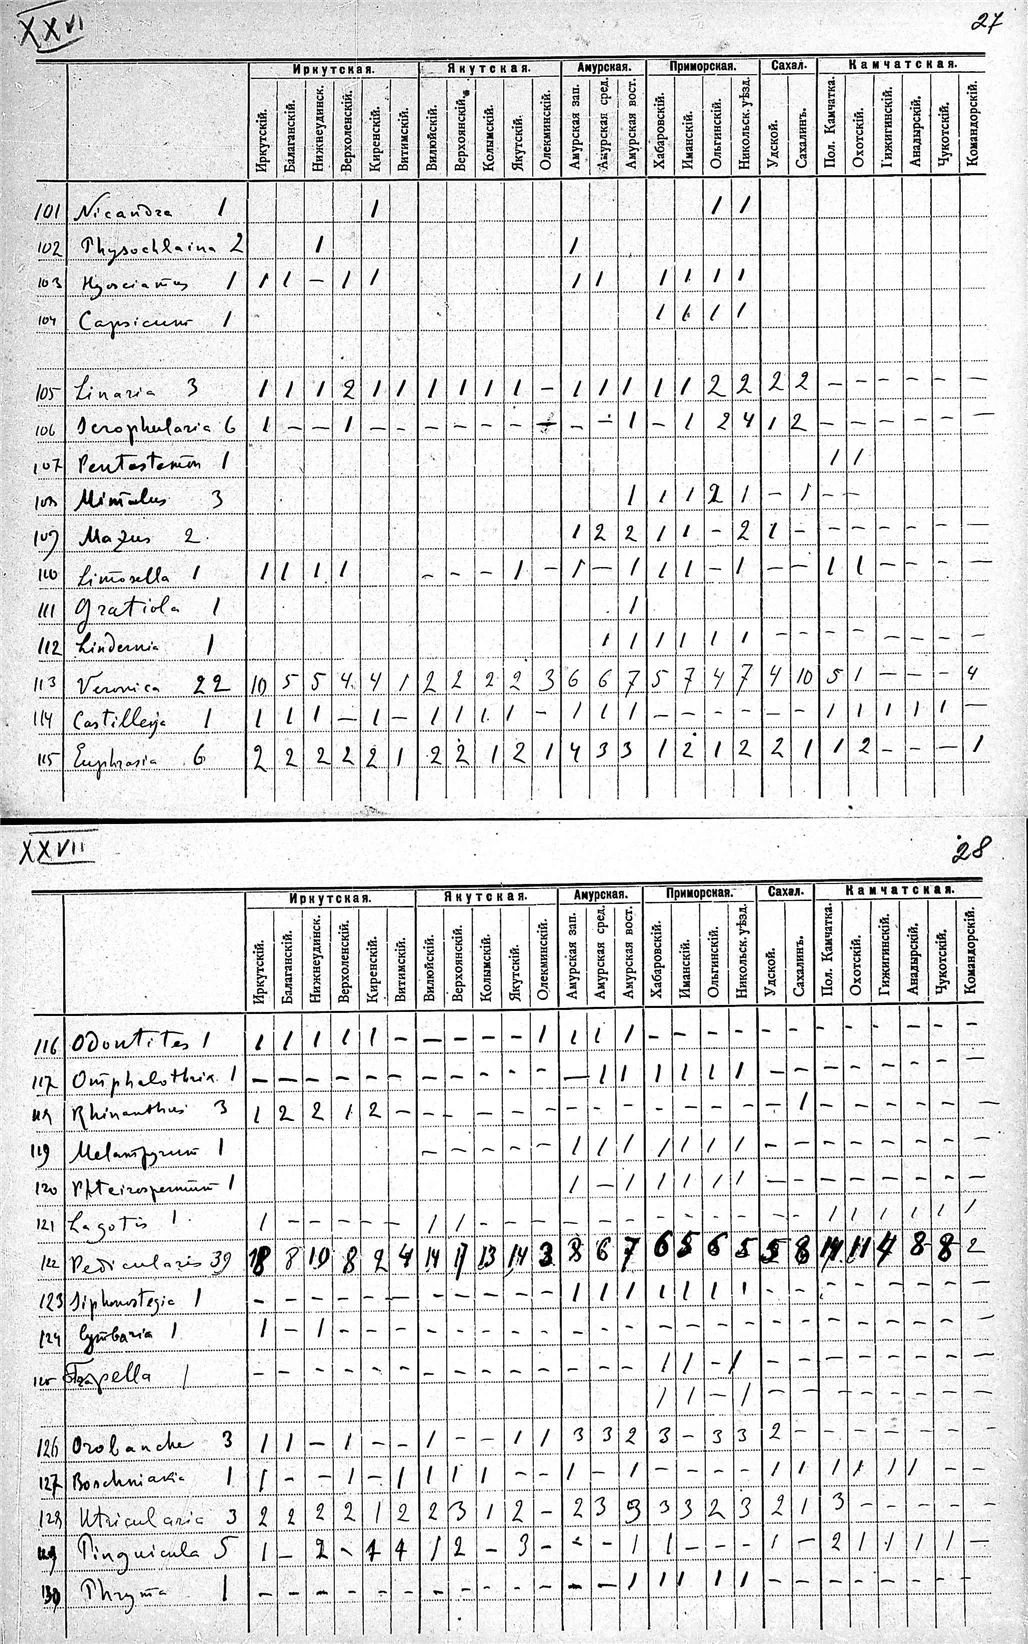 XXVI
27
Иркутская. Якутская. Амурская. Приморская. Сахал. Камчатская.
Иркутскій. Балаганскій. Нижнеудинск. Верхоленскій. Киренскій. Витимскій. Вилюйскій. Верхоянскій. Колымскій. Якутскій. Олекминскій. Амурская зап. Амурская сред. Амурская вост. Хабаровскій. Иманскій. Ольгинскій. Никольск. уѣзд. Удской. Сахалинъ. Пол. Камчатка. Охотскій. Гижигинскій. Анадырскій. Чукотскій. Командорскій.
101 Nicandra 1 1 1 1
102 Physochlaina 2 1 1
103 Hyosciamus 1 1 1 – 1 1 1 1 1 1 1 1
104 Capsicum 1 1 1 1 1
105 Linaria 3 1 1 1 2 1 1 1 1 1 1 – 1 1 1 1 1 2 2 2 2 – – – – – –
106 Scrophularia 6 1 – – 1 – – – – – – – – – 1 – 1 2 4 1 2 – – – – – –
107 Pentastemon 1 1 1
108 Mimulus 3 1 1 1 2 1 – 1 – –
109 Mazus 2 1 2 2 1 1 – 2 1 – – – – – – –
110 Limosella 1 1 1 1 1 – – – 1 – 1 – 1 1 1 – 1 – – 1 1 – – – –
111 Gratiola 1 1
112 Lindernia 1 1 1 1 1 1 1 – – – – – – – –
113 Veronica 22 10 5 5 4 4 1 2 2 2 2 3 6 6 7 5 7 4 7 4 10 5 1 – – – 4
114 Castilleja 1 1 1 1 – 1 – 1 1 1 1 – 1 1 1 – – – – – – 1 1 1 1 1 –
115 Euphrasia 6 2 2 2 2 2 1 2 2 1 2 1 4 3 3 1 2 1 2 2 1 1 2 – – – 1
XXVII
28
Иркутская. Якутская. Амурская. Приморская. Сахал. Камчатская.
Иркутскій. Балаганскій. Нижнеудинск. Верхоленскій. Киренскій. Витимскій. Вилюйскій. Верхоянскій. Колымскій. Якутскій Олекминскій. Амурская зап. Амурская сред. Амурская вост. Хабаровскій. Иманскій. Ольгинскій. Никольск. уѣзд. Удской. Сахалинъ. Пол. Камчатка. Охотскій. Гижигинскій. Анадырскій. Чукотскій. Командорскій.
116 Odontites 1 1 1 1 1 1 – – – – – 1 1 1 1 – – – – – – – – – – – –
117 Omphalothrix 1 – – – – – – – – – – – – 1 1 1 1 1 1 – – – – – – – –
Rhinanthus 3 1 2 2 1 2 – – – – – – – – – – – – – – 1 – – – – – –
119 Melampyrum 1 – – – – – 1 1 1 1 1 1 1 – – – – – – – –
120 Phteirospermum 1 1 – 1 1 1 1 1 – – – – – – – –
121 Lagotis 1 1 – – – – – 1 1 – – – – – – – – – – – – 1 1 1 1 1 1
122 Pedicularis 39 18 8 10 8 2 4 14 17 13 14 3 8 6 7 6 5 6 5 5 8 14 11 4 8 8 2
123 Siphonostegia 1 – – – – – – – – – – – 1 1 1 1 1 1 1 – – – – – – – –
124 Cymbaria 1 1 – 1 – – – – – – – – – – – – – – – – – – – – – – –
125 Trapella 1 – – – – – – – – – – – – – – 1 1 – 1 – – – – – – – –
1 1 – 1 – – – – – – – –
126 Orobanche 3 1 1 – 1 – – 1 – – 1 1 3 3 2 3 – 3 3 2 – – – – – – –
127 Boschniakia 1 1 – – 1 – 1 1 1 1 – – 1 – 1 – – – – 1 1 1 1 1 1 – –
128 Utricularia 3 2 2 2 2 1 2 2 3 1 2 – 2 3 3 3 3 2 3 2 1 3 – – – – –
129 Pinguicula 5 1 – 2 – 1 4 1 2 – 3 – – – 1 1 – – – 1 – 2 1 1 1 1 –
130 Phryma 1 – – – – – – – – – – – – – 1 1 1 1 1 – – – – – – – –